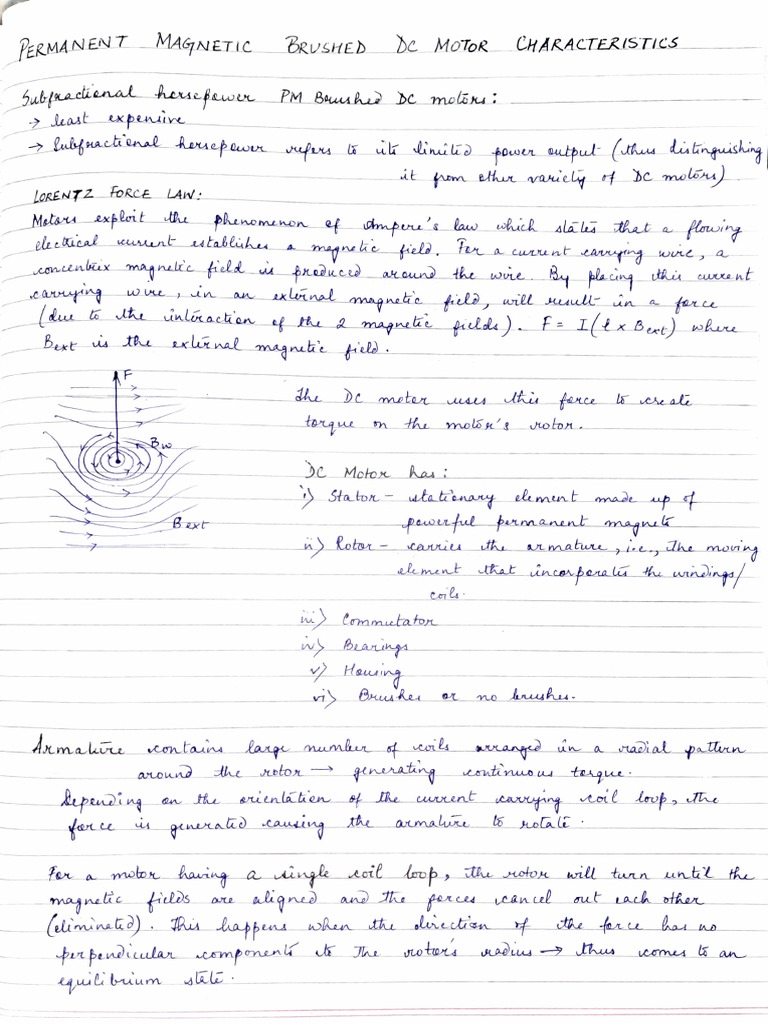 PERMANENT MAGNETIC BRUSHED DC MOTOR CHARACTERISTICS
Subfractional horsepower PM Brushed DC motors:
→ least expensive
→ Subfractional horsepower refers to its limited power output (thus distinguishing
it from other variety of DC motors).
LORENTZ FORCE LAW:
Motors exploit the phenomenon of Ampere's law which states that a flowing
electrical current establishes a magnetic field. For a current carrying wire, a
concentric magnetic field is produced around the wire. By placing this current
carrying wire, in an external magnetic field, will result in a force
(due to the interaction of the 2 magnetic fields). F = I(ℓ x Bext) where
Bext is the external magnetic field.
F
Bw
Bext
The DC motor uses this force to create
torque on the motor's rotor.
DC Motor has:
i) Stator - stationary element made up of
powerful permanent magnets
ii) Rotor - carries the armature, i.e., the moving
element that incorporates the windings/
coils.
iii) Commutator
iv) Bearings
v) Housing
vi) Brushes or no brushes.
Armature contains large number of coils arranged in a radial pattern
around the rotor → generating continuous torque.
Depending on the orientation of the current carrying coil loop, the
force is generated causing the armature to rotate.
For a motor having a single coil loop, the rotor will turn until the
magnetic fields are aligned and the forces cancel out each other
(eliminated). This happens when the direction of the force has no
perpendicular components to the rotor's radius → thus comes to an
equilibrium state.